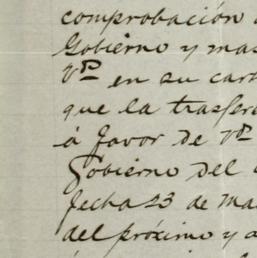 comprobación
Gobierno y mas
Vd en su car
que la trasfer
á favor de Vd
Gobierno del
fecha 23 de Ma
del próximo y a